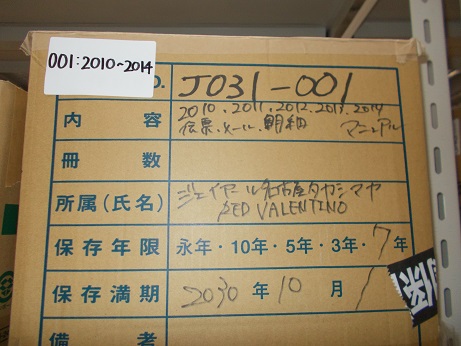 001:2010~2014
O.
J031-001
内容
2010.2011.2012.2013.2014
伝票.メール.明細 マニュアル
冊数
所属(氏名)
ジェイアール名古屋タカシマヤ
RED VALENTINO
保存年限 永年・10年・5年・3年・7年
保存満期 2030年10月1
備考